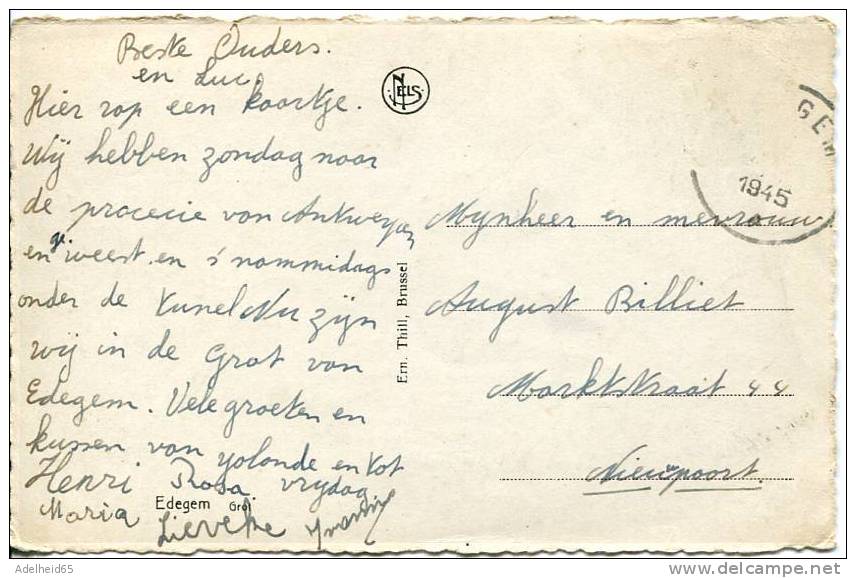 Beste Ouders.
en Luc.
Hier rap een kaartje.
Wij hebben zondag naar
de procecie van Antwerpen
en geweest. en s'nammidags
onder de tunel Nu zijn
wij in de Grot van
Edegem. Vele groeten en
kussen van yolande en tot
Henri Rosa vrijdag
Maria Lieveke
Edegem Grot
NELS
Ern. Thill, Brussel
GEM
1945
Mynheer en mevrouw
August Billiet
Marktstraat 44
Nieuwpoort.
Adelheid65
delcampe.net